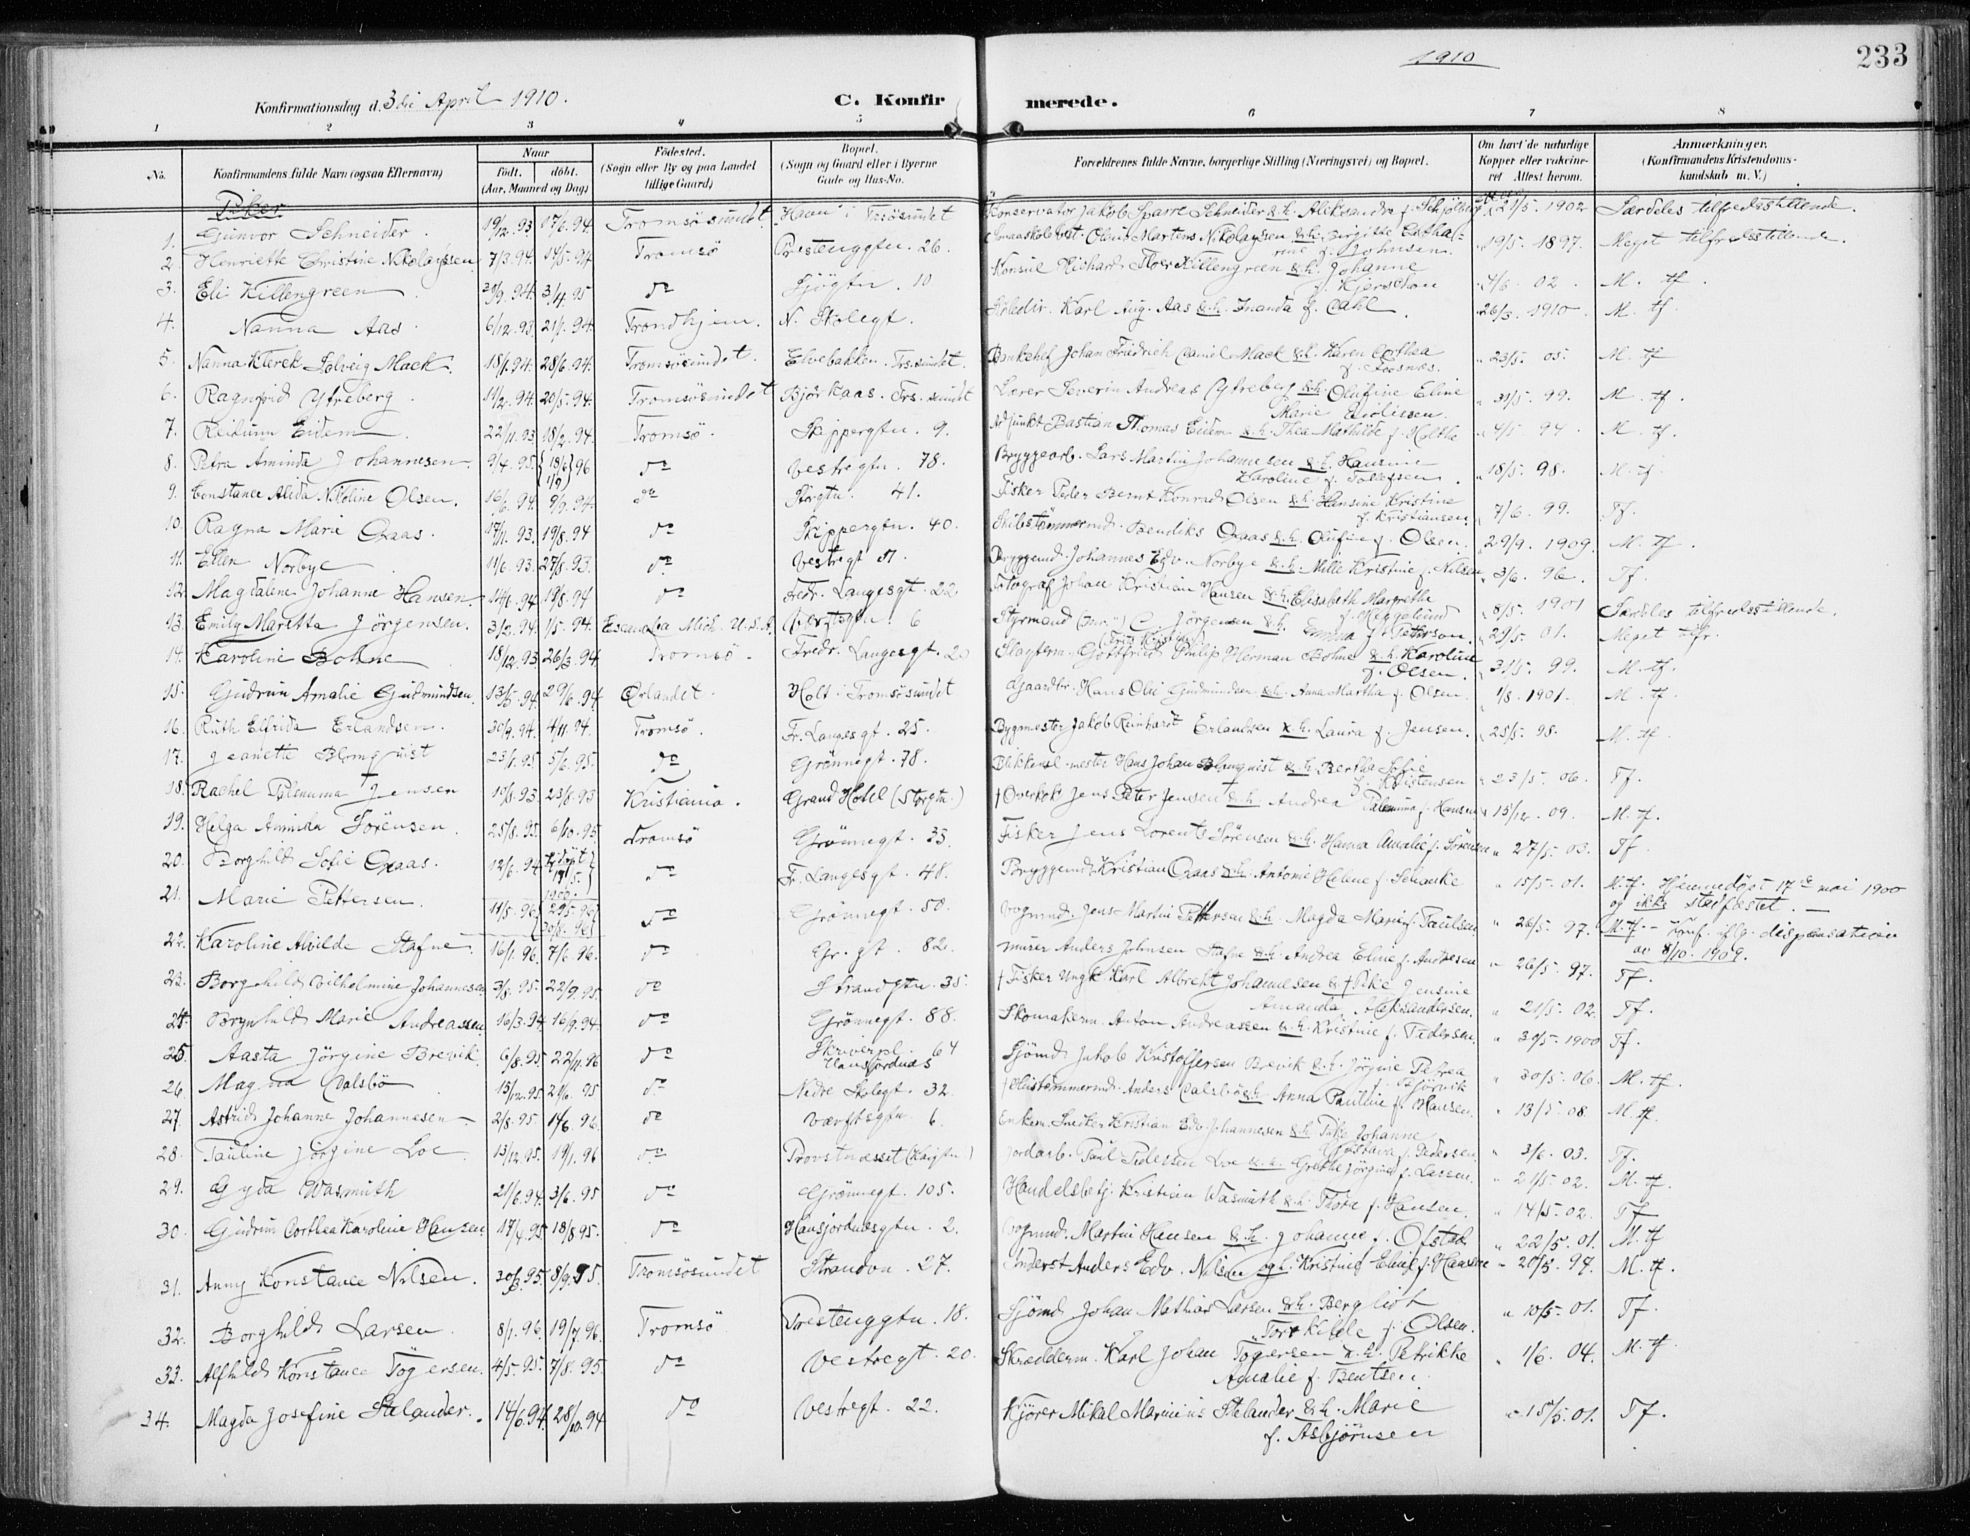 1910
233
Konfirmationsdag d. 3die April 1910.
C. Konfirmerede.
1 2 3 4 5 6 7 8
No. Konfirmandens fulde Navn (ogsaa Efternavn) Naar født. døbt. (Aar, Maaned og Dag) Fødested. (Sogn eller By og paa Landet tillige Gaard) Bopæl. (Sogn og Gaard eller i Byerne Gade og Hus-No. Forældrenes fulde Navne, borgerlige Stilling (Næringsvei) og Bopæl. Om havt de naturlige Kopper eller vakcineret Attest herom. Anmærkninger. (Konfirmandens Kristendomskundskab m. V.)
Piker
1. Gunvor Schneider. 19/12.93 17/6.94 Tromsøsundet. i Trsösundet Konservator Jakob Sparre Schneider & h. Aleksandra f. 21/5. 1902 Særdeles tilfredsstillende.
2. Henriette Christine Nikolayssen 7/3.94. 14/5.94 Tromsö Prestenggtn. 26. Olaus Martens Nikolayssen & h. Birgitte Cathrine f. Johnsen. 19/5. 1897. Meget tilfredsstillende.
3. Eli Killengreen 3/4.95 do Sjögtn. 10 Konsul Richard Killengreen & h. Johanne f. Kjerschow 4/6 02. M. tf.
4. Nanna Aas. 6/12.93 21/1.94. Trondhjem. N. Skolegt. Karl Aug. Aas & h. Inanda f. Dahl. 26/3. 1910 M. tf.
5. Nanna Klerck Solveig Mack. 18/1.94. 28/6.94. Tromsösundet. Elvebakken. Trs.sundet. Bankchef Johan Friedrich Daniel Mack & h. Karen Dorthea f. Foosnæs. 23/5. 05. M. tf
6. Ragnfrid Ytreberg. 11/2.94. 20/5.94. Tromsösundet Bjørkaas. Trs.sundet Lærer Severin Andreas Ytreberg & h. Olufine Eline Marie 31/5. 99. M. tf.
7. Reidunn Eidem 22/11.93 18/2.94. Tromsö. Skippergtn. 9. Adjunkt Bastian Thomas Eidem & h. Thea Mathilde f. Holthe 4/5 94 M. tf.
8. Petra Aminda Johannesen. 9/4.95. 18/6 1/9 96 do Vestregtn. 78. Bryggearb. Lars Martin Johannesen & h. Hansine Karoline f. Tollefsen. 18/5. 98. M. tf
9. Constance Alida Nikoline Olsen. 16/1.94. 9/9.94. do Storgtn. 41. Fisker Peder Bernt Konrad Olsen & h. Hansine Kristine f. Kristiansen. 7/6. 99. Tf.
10. Ragna Marie Graas. 17/11.93. 19/8.94 do Skippergtn. 40. Skibstömmermd. Bendiks Graas & h. Olufine f. Olsen. 29/9. 1909. M. Tf.
11. Ellen Norbye 11/6.93. 27/8.93. do Vestregt Bryggemd. Johannes Edv. Norbye & h. Mille Kristine f. Nilsen 3/6. 96. Tf.
12. Magdalene Johanne Hansen. 19/8.94 do Fredr. Langesgt. 22 Fotograf Johan Kristian Hansen & h. Elisabeth Margrethe f. Heggelund 8/5. 1901 Særdeles tilfredsstillende.
13. Emily Maretta Jörgensen. 3/2.94. 1/5.94. Escanaba Mich. U.S.A. Værftsgtn. 6 Styrmand C. Jörgensen & h. Emma f. Peterson. 29/5. 01. Meget tilfr.
14. Karoline Bohne 18/12.93 26/3.94 Tromsö. Fredr. Langesgt. 20 Slagterm. Gottfried Philip Herman Bohne & h. Karoline f. Olsen. 31/5. 99. M. tf.
15. Gudrun Amalie Gudmundsen. 13/5.94 29/6.94 Ørlandet. Holt i Tromsösundet Gaardbr. Hans Olai Gudmundsen & h. Anna Martha f. Olsen. 1/8. 1901. M. tf.
16. Ruth Elfrida Erlandsen. 30/9.94. 4/11.94. Tromsö. Fr. Langesgt. 25. Bygmester Jakob Reinhardt Erlandsen & h. Laura f. Jensen. 25/5. 98. M. tf.
17. Jeanette Blomquist 23/1.95 5/6.95. do Grönnegt. 78. Blikkensl.mester Hans Johan Blomquist & h. Bertha Sofie f. Kristensen 23/5. 06. Tf.
18. Rachel Palenuma Jensen 23/8.93 Kristiania. Grand Hotel (Storgtn.) † Overkok Jens Peter Jensen & h. Andrea Palenuma f. Hansen 15/12. 09. M. tf.
19. Helga Aminda Sörensen. 25/8.95. 6/10.95 Tromsö Grönnegt. 33. Fisker Jens Lorents Sörensen & h. Hanna Amalie f. Sörensen 27/5. 03. Tf
20. Borghild Sofie Graas. 12/6.94 do Fr. Langesgt. 48. Bryggemd. Kristian Graas & h. Antonie Helene f. Schanke 15/5. 01. M. tf. Hjemmedöpt 17de mai 1900 og ikke stadfæstet.
21. Marie Pettersen. 11/5.96 do Grönnegt. 50. Vognmd. Jens Martin Pettersen & h. Magda Marie f. Paulsen 26/5. 97. M. tf. - Konf. iflg. dispensation av 8/10. 1909.
22. Karoline Alvilde Stafne 16/1.96. 7/6.96. do Gr.gt. 82. Murer Anders Johnsen Stafne & h. Andrea Eline f. Andresen 26/5. 97. Tf.
23. Borghild Vilhelmine Johannesen 3/8.95. 22/9.95. do Strandgtn. 35. † Fisker Ungk. Karl Albrekt Johannesen & † Pike Jensine Amanda Aleksandersen. 21/5. 02. Tf.
24. Brynhild Marie Andreassen 16/3.94 16/9.94. do Grönnegt. 88. Skomakerm. Anton Andreassen & h. Kristine f. Pedersen. 30/5. 1900 Tf.
25. Aasta Jörgine Brevik 6/8.95 22/11.96 do 64 Hansjordnæs Sjömd. Jakob Kristoffersen Brevik & h. Jörgine Petrea 30/5. 06. M. tf.
26. Magna Dalsbö 13/12.95. 21/6.95 do Nedre Skolegt. 32. † Anders Dalsbö & h. Anna Pauline f. Hansen. 13/5. 08. M. tf.
27. Astrid Johanne Johannesen 2/8.95. 14/6.96. do Værftsgtn 6. Enkem. Snedker Kristian Edv. Johannesen & h. Johanne Gustava f. Pedersen 3/6. 03. Tf.
28. Pauline Jörgine Loe 13/12.95. 19/1.96 do Provstnæsset (Havgtn.) Jordarb. Paul Pedersen Loe & h. Grethe Jörgine f. Larsen. 21/5. 02. M. tf.
29. Gyda Wasmuth 21/6.94 3/6.95 do Grönnegt. 105. Handelsbetj. Kristian Wasmuth & h. Thora f. Hansen. 14/5. 02. Tf
30. Gudrun Dorthea Karoline Hansen. 17/4.95 18/8 95. do Hansjordnæsgtn. 2. Vognmd. Martin Hansen & h. Johanne f. Ofstad 22/5. 01. M. tf
31. Anny Konstance Nilsen. 8/9.95. Tromsösundet Strandvn. 27. Inderst Anders Edv. Nilsen og h. Kristine Eline f. Hansen 20/5. 97. M. tf.
32. Borghild Larsen. 8/1.96. 19/7.96. Tromsö Prestenggtn. 18. Sjömd. Johan Mathias Larsen & h. Bergliot Torkilde f. Olsen. 10/5. 01. Tf.
33. Alfhild Konstance Tögersen. 4/5.95. 7/8.95. do Vestregt. 20. Skrædderm. Karl Johan Tögersen & h. Petrikke Amalie f. Bentsen. 1/6. 04. M. tf.
34. Magda Josefine Stelander. 14/6.94. 28/10.94 do Vestregt. 22. Kjörer Mikal Marinius Stelander & h. Marie f. Asbjörnsen 15/5. 01. Tf.